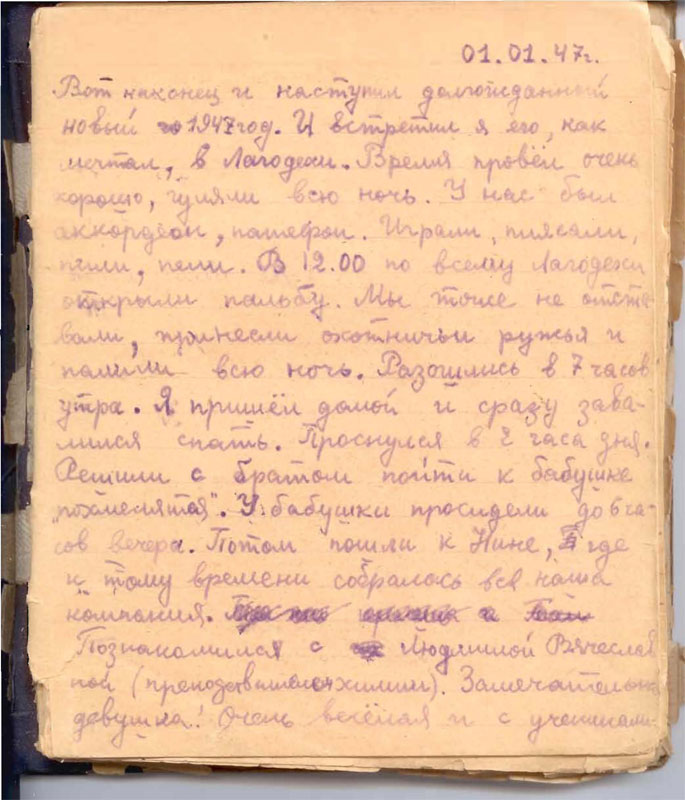 01.01.47г.
Вот наконец и наступил долгожданный
новый 1947 год. И встретил я его, как
мечтал, в Лагодехи. Время провёл очень
хорошо, гуляли всю ночь. У нас был
аккордеон, патефон. Играли, плясали,
пили, пели. В 12.00 по всему Лагодехи
открыли пальбу. Мы тоже не отста-
вали, принесли охотничьи ружья и
палили всю ночь. Разошлись в 7 часов
утра. Я пришёл домой и сразу зава-
лился спать. Проснулся в 2 часа дня.
Решили с братом пойти к бабушке
"похмелятся". У бабушки просидели до 6 ча-
сов вечера. Потом пошли к Нине, где
к тому времени собралось вся наша
компания.
Познакомился с Людмилой Вячеслав
ной (преподавателем химии). Замечательная
девушка! Очень весёлая и с учениками